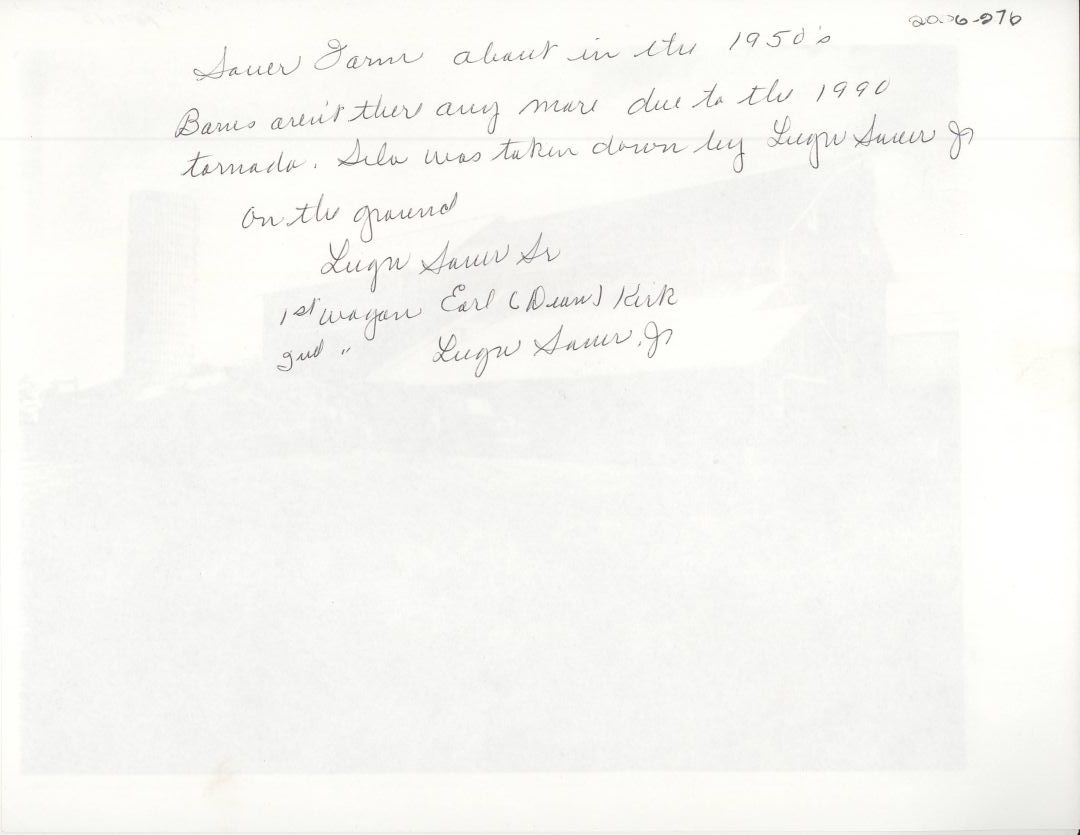 Sauer Farm about in the 1950's
Barns aren't there any more due to the 1990
tornado. Silo was taken down by Sauer Jr
On the ground
Sauer Sr
1st wagon Earl (Dean) Kirk
2nd " Sauer, Jr